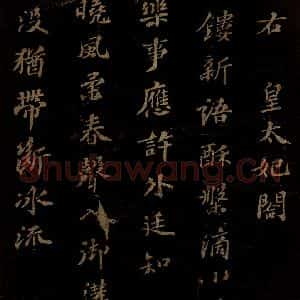 右 皇太妃閣
鏤新語酥槃滴小
樂事應許外廷知
曉風柔春聲入御溝
沒猶帶斷冰流
Shufawang.CN